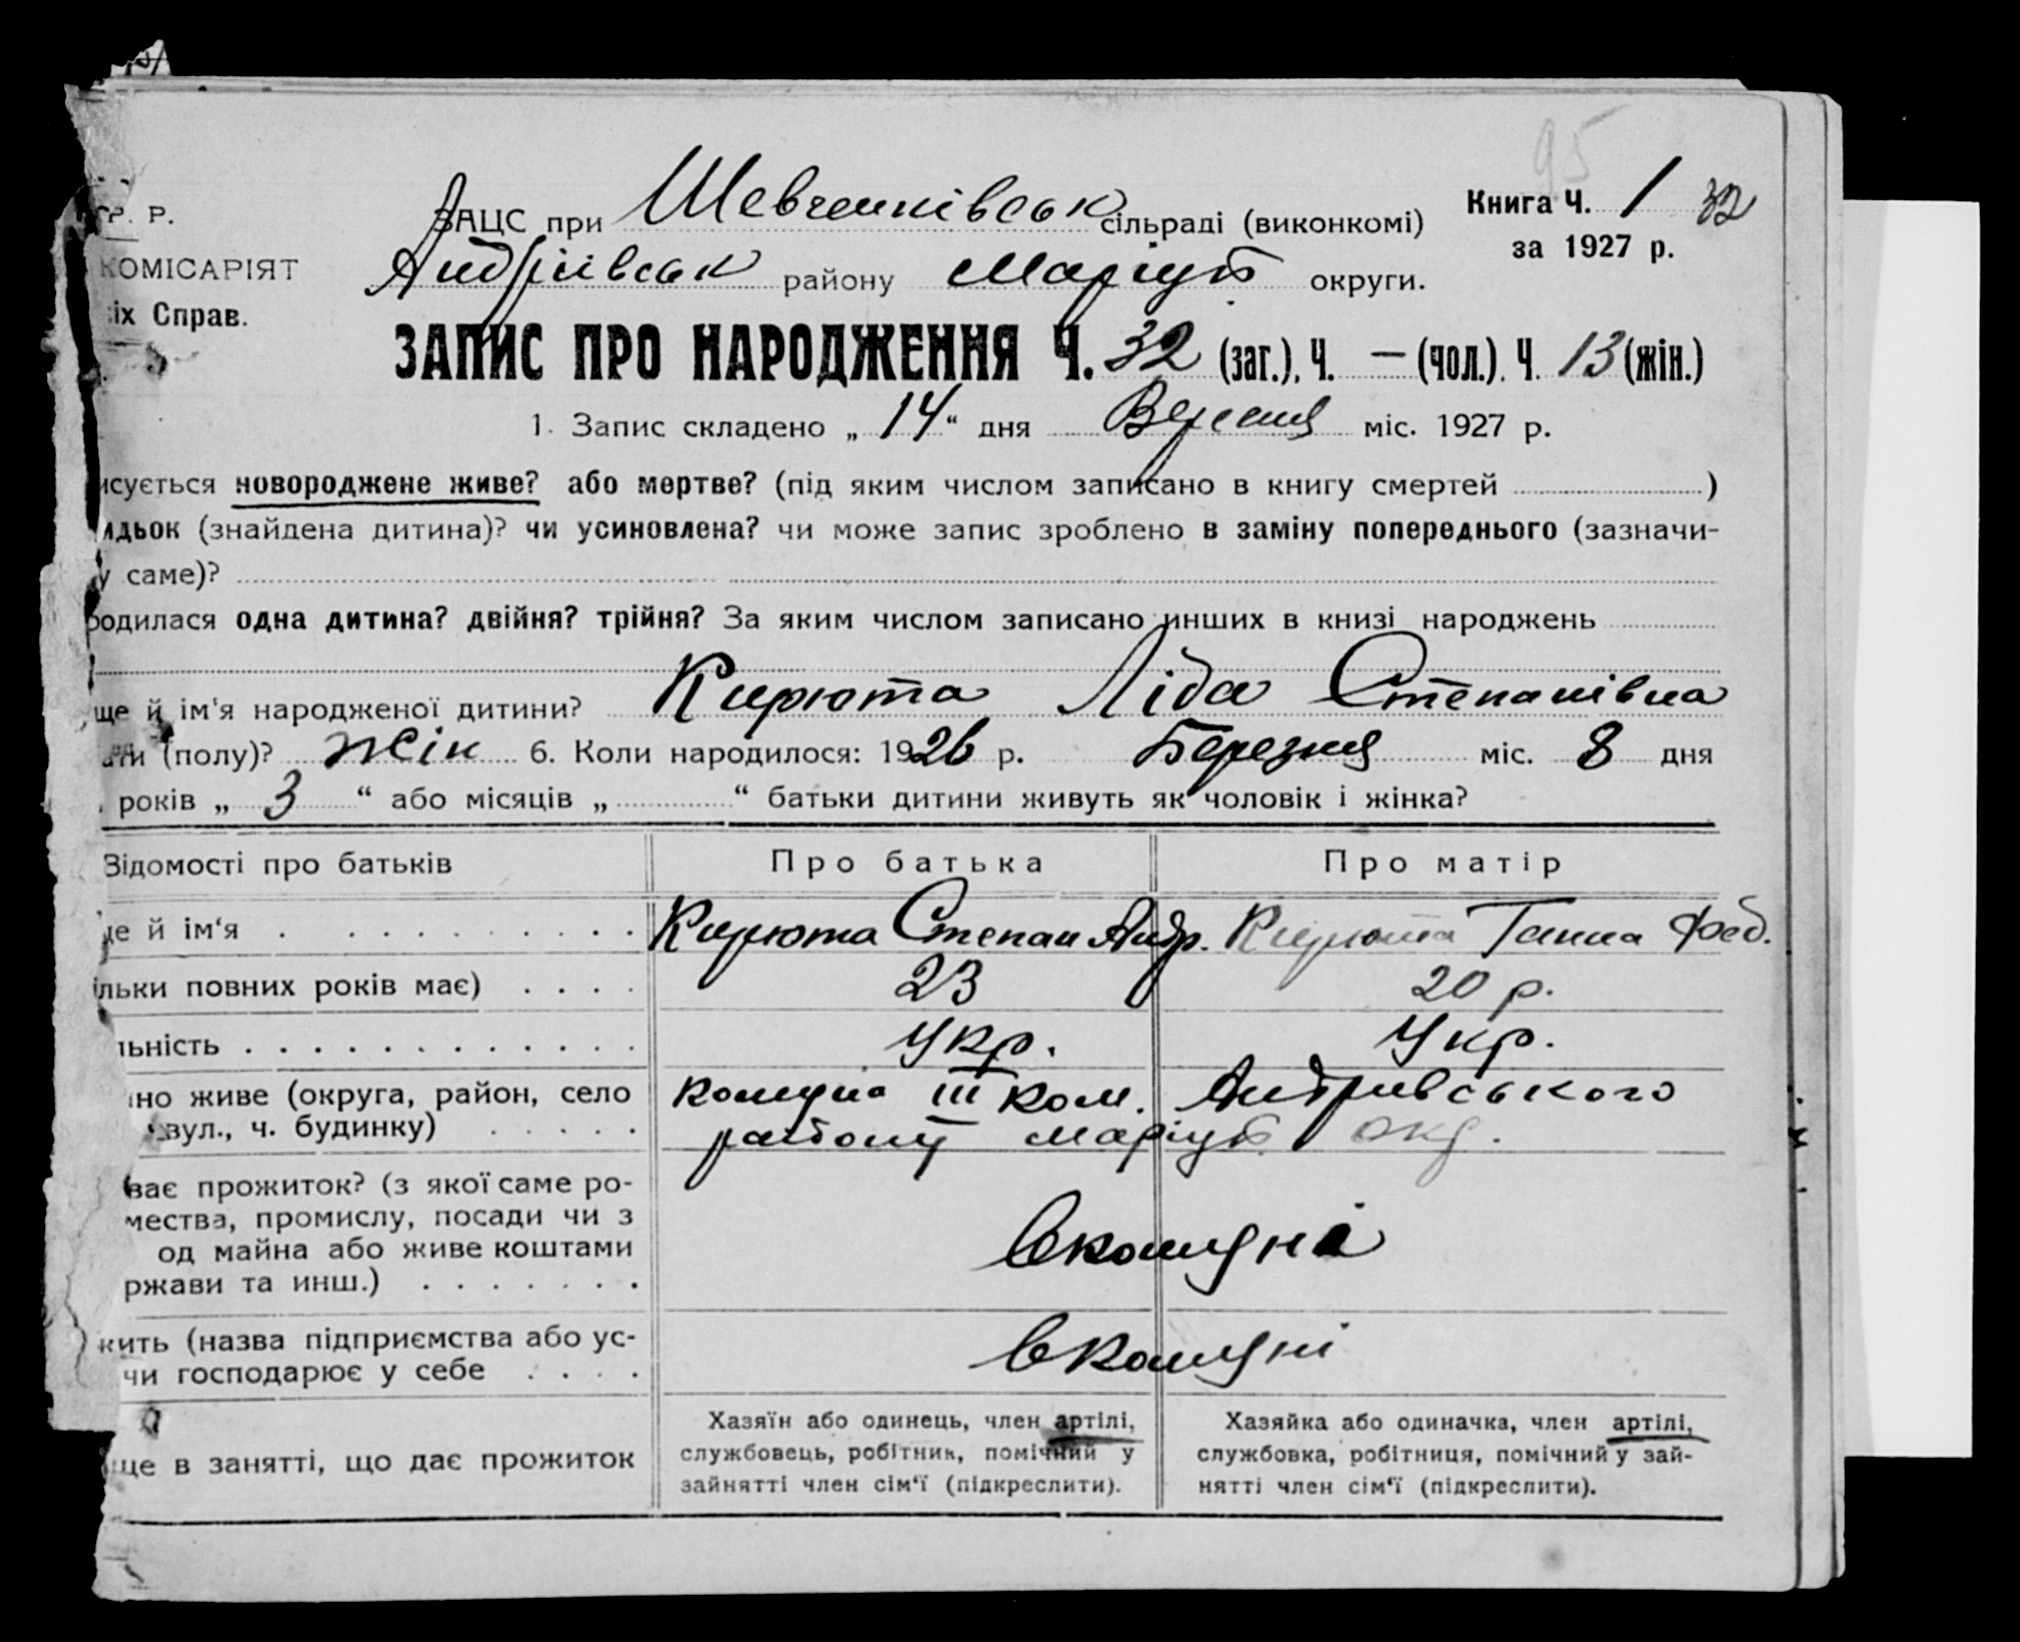 95
Р. Р. ЗАЦС при Шевченківськ сільраді (виконкомі) Книга Ч. 1 32
за 1927 р.
КОМІСАРІЯТ Андріівськ району Маріуп округи.
іх Справ.
ЗАПИС ПРО НАРОДЖЕННЯ Ч. 32 (заг.), Ч. — (чол.). Ч. 13 (жін.)
1. Запис складено „ 14 “ дня Вересня міс. 1927 р.
исується новороджене живе? або мертве? (під яким числом записано в книгу смертей )
идьок (знайдена дитина)? чи усиновлена? чи може запис зроблено в заміну попереднього (зазначи-
у саме)?
родилася одна дитина? двійня? трійня? За яким числом записано инших в книзі народжень
ще й ім'я народженої дитини? Кирюта Ліда Степанівна
ати (полу)? жін 6. Коли народилося: 1926 р. Березня міс. 8 дня
років „ 3 “ або місяців „ “ батьки дитини живуть як чоловік і жінка?
Відомості про батьків Про батька Про матір
ще й ім'я Кирюта Степан Андр. Кирюта Ганна Фед.
ільки повних років має) 23 20 р.
льність Укр. Укр.
но живе (округа, район, село комуна III ком. Андрівського
вул., ч. будинку) району Маріуп окр.
ває прожиток? (з якої саме ро-
мества, промислу, посади чи з
од майна або живе коштами
ржави та инш.) в комуні
жить (назва підприємства або ус-
чи господарює у себе в комуні
ще в занятті, що дає прожиток
Хазяїн або одинець, член артілі,
службовець, робітник, помічний у
зайнятті член сім'ї (підкреслити).
Хазяйка або одиначка, член артілі,
службовка, робітниця, помічний у зай-
нятті член сім'ї (підкреслити).